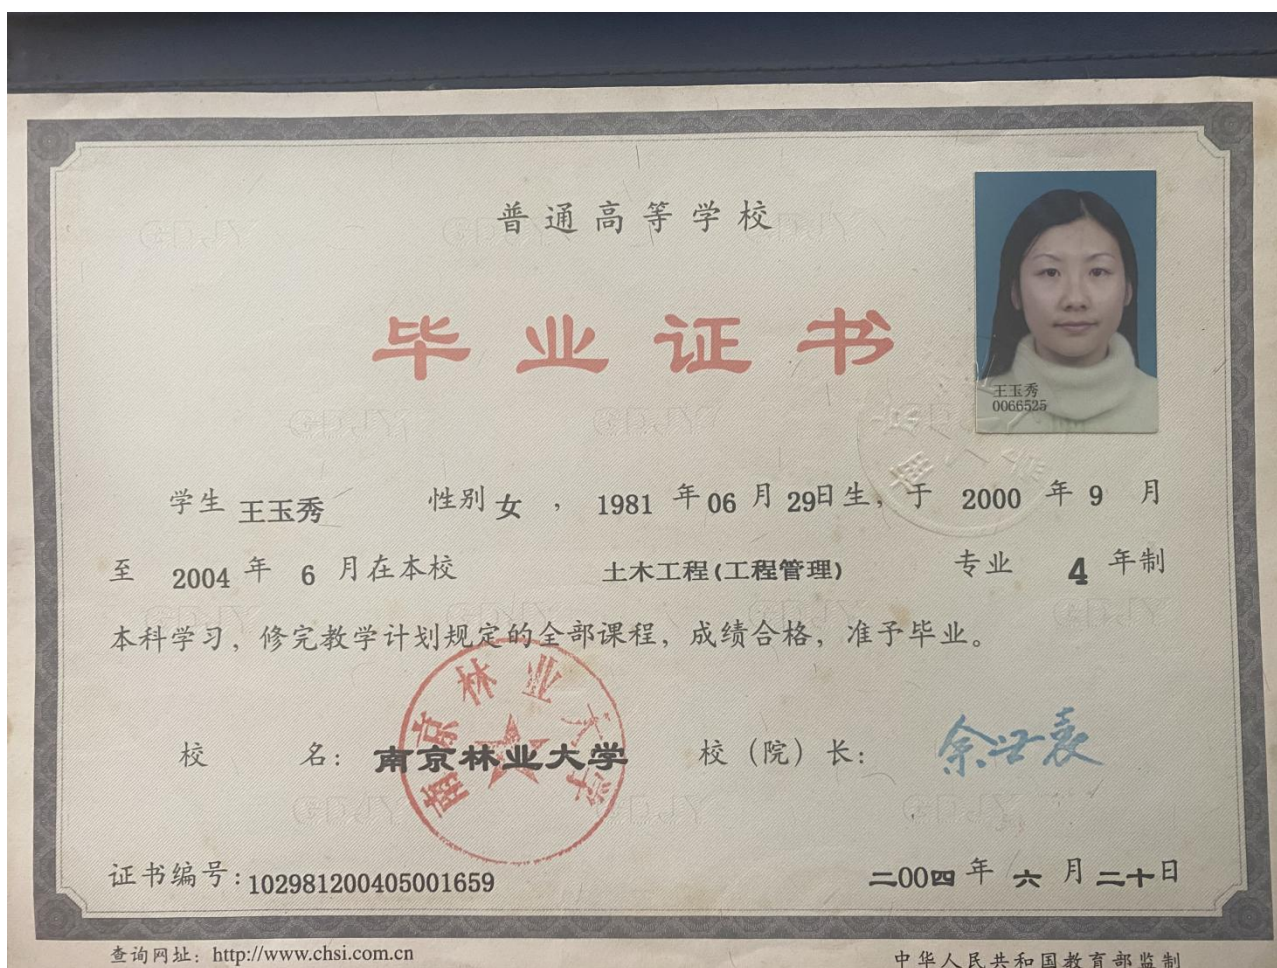 普通高等学校
毕业证书
王玉秀
0066525
学生 王玉秀 性别 女 ， 1981 年 06 月 29日生，于 2000 年 9 月
至 2004 年 6 月在本校 土木工程(工程管理) 专业 4 年制
本科学习，修完教学计划规定的全部课程，成绩合格，准予毕业。
南京林业大学
校 名： 南京林业大学 校（院）长：
证书编号：102981200405001659 二00四 年 六 月 二十日
查询网址：http://www.chsi.com.cn 中华人民共和国教育部监制